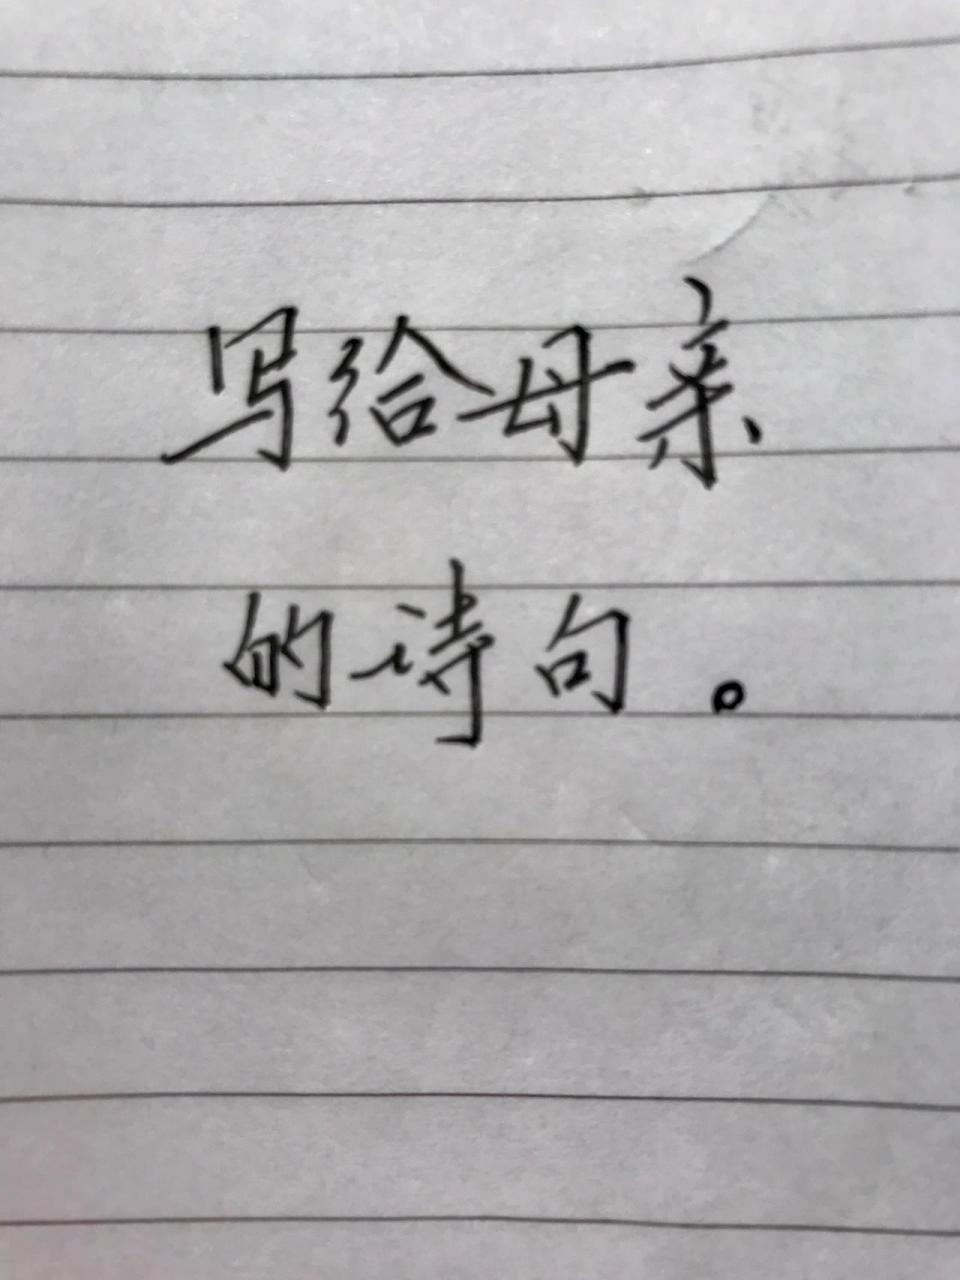 写给母亲
的诗句。